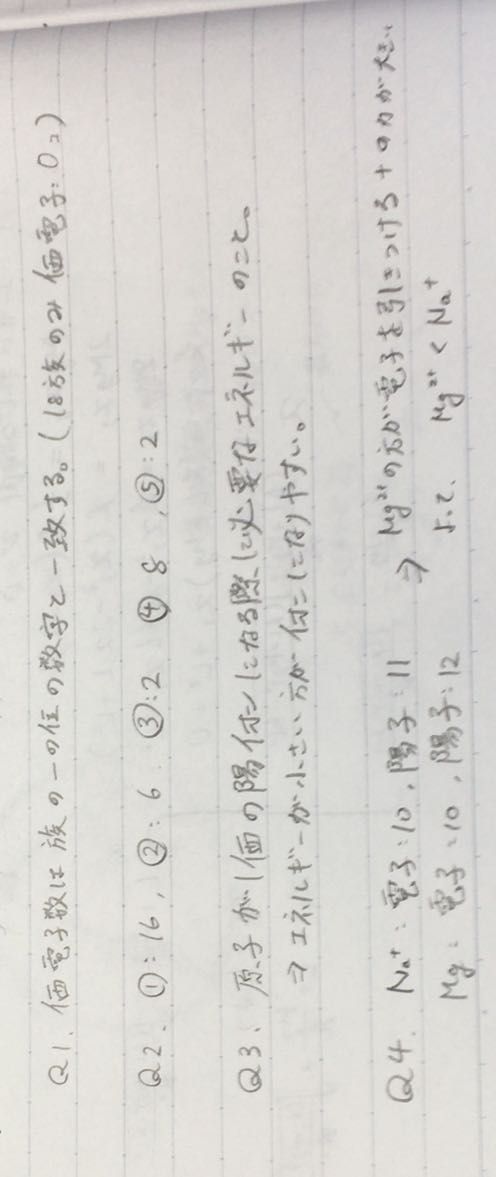 Q1. 価電子数は族の一の位の数字と一致する。(18族のみ 価電子:0コ)
Q2. ①:16, ②:6. ③:2 ④ 8, ⑤:2
Q3. 原子が1価の陽イオンになる際に必要なエネルギーのこと。
⇒ エネルギーが小さい方がイオンになりやすい。
Q4. Na⁺:電子:10, 陽子:11 ⇒ Mg²⁺の方が電子を引きつける+の力が大きい
Mg:電子:10, 陽子:12 よって. Mg²⁺ < Na⁺